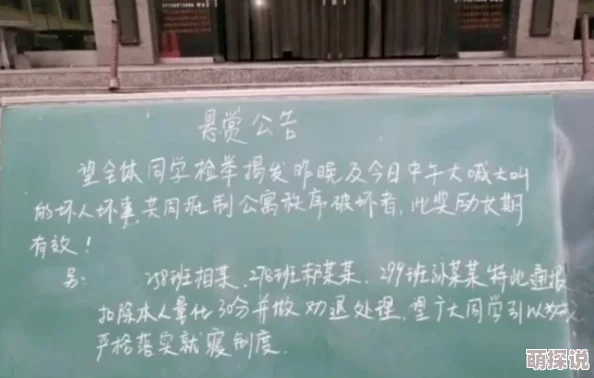 悬赏公告
望全体同学检举揭发昨晚及今日中午大喊大叫
的坏人坏事,共同抵制公寓秩序破坏者,此奖励长期
有效!
另: 258班相某、278班郝某某、299班孙某某特此通报
扣除本人量化30分并做劝退处理,望广大同学引以为戒,
严格落实就寝制度.
萌探说